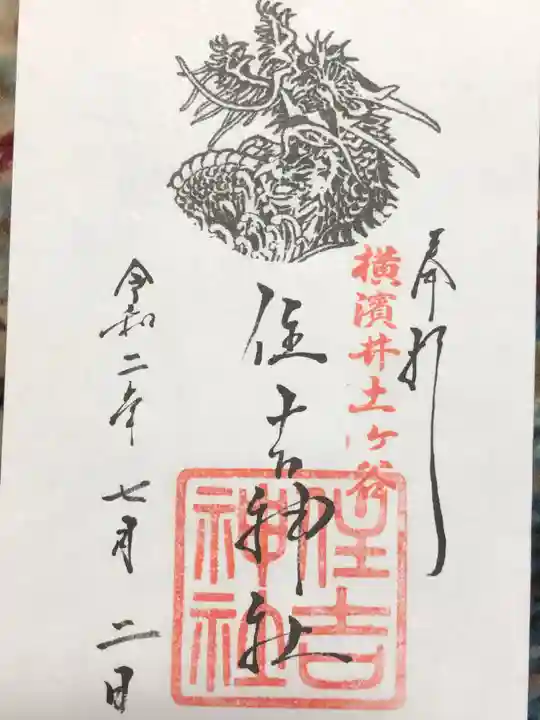 奉拝
横濱井土ヶ谷
住吉神社
住吉
神社
令和二年七月二日